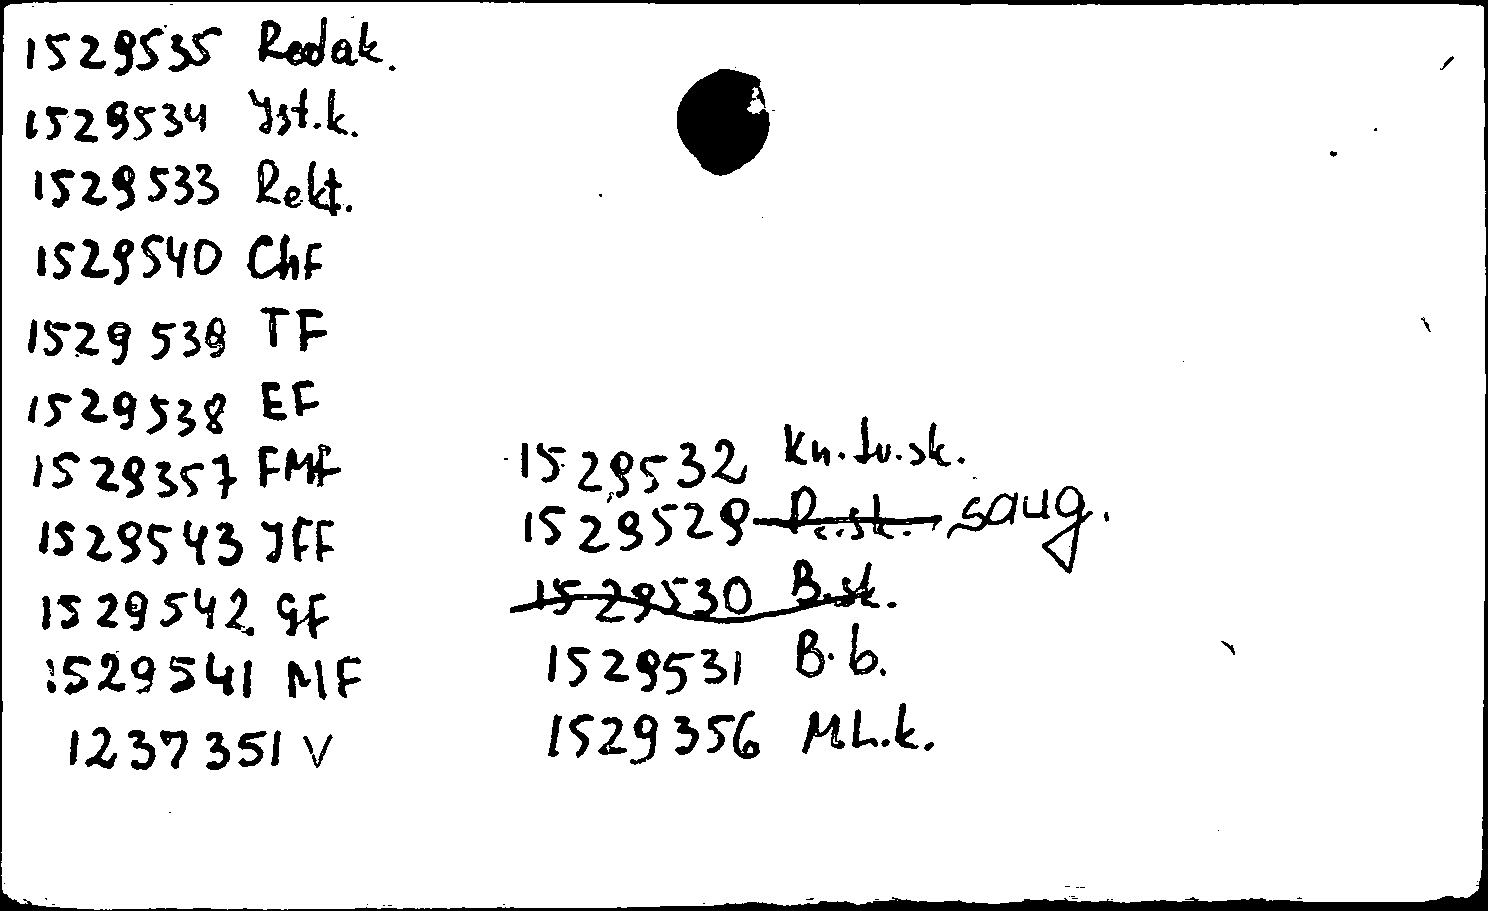 1529535 Redak.
1529534 Yst.k.
1529533 Rekt.
1529540 ChF
1529539 TF
1529538 EF
1529357 FMF
1529543 YFF
1529542 GF
1529541 MF
1237351 V
1529532 Kn.Iv.sk.
1529529 saug.
1529530 B.sk.
1529531 B.b.
1529356 M.k.